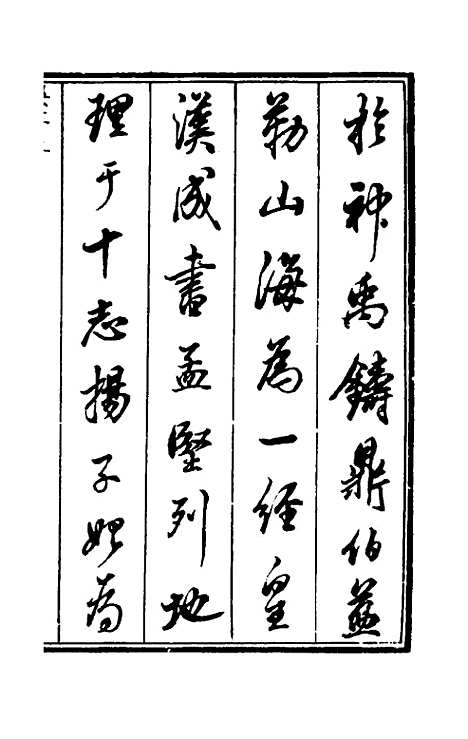 於神禹鑄鼎伯益
勒山海為一經皇
漢成書孟堅列地
理于十志揚子始為